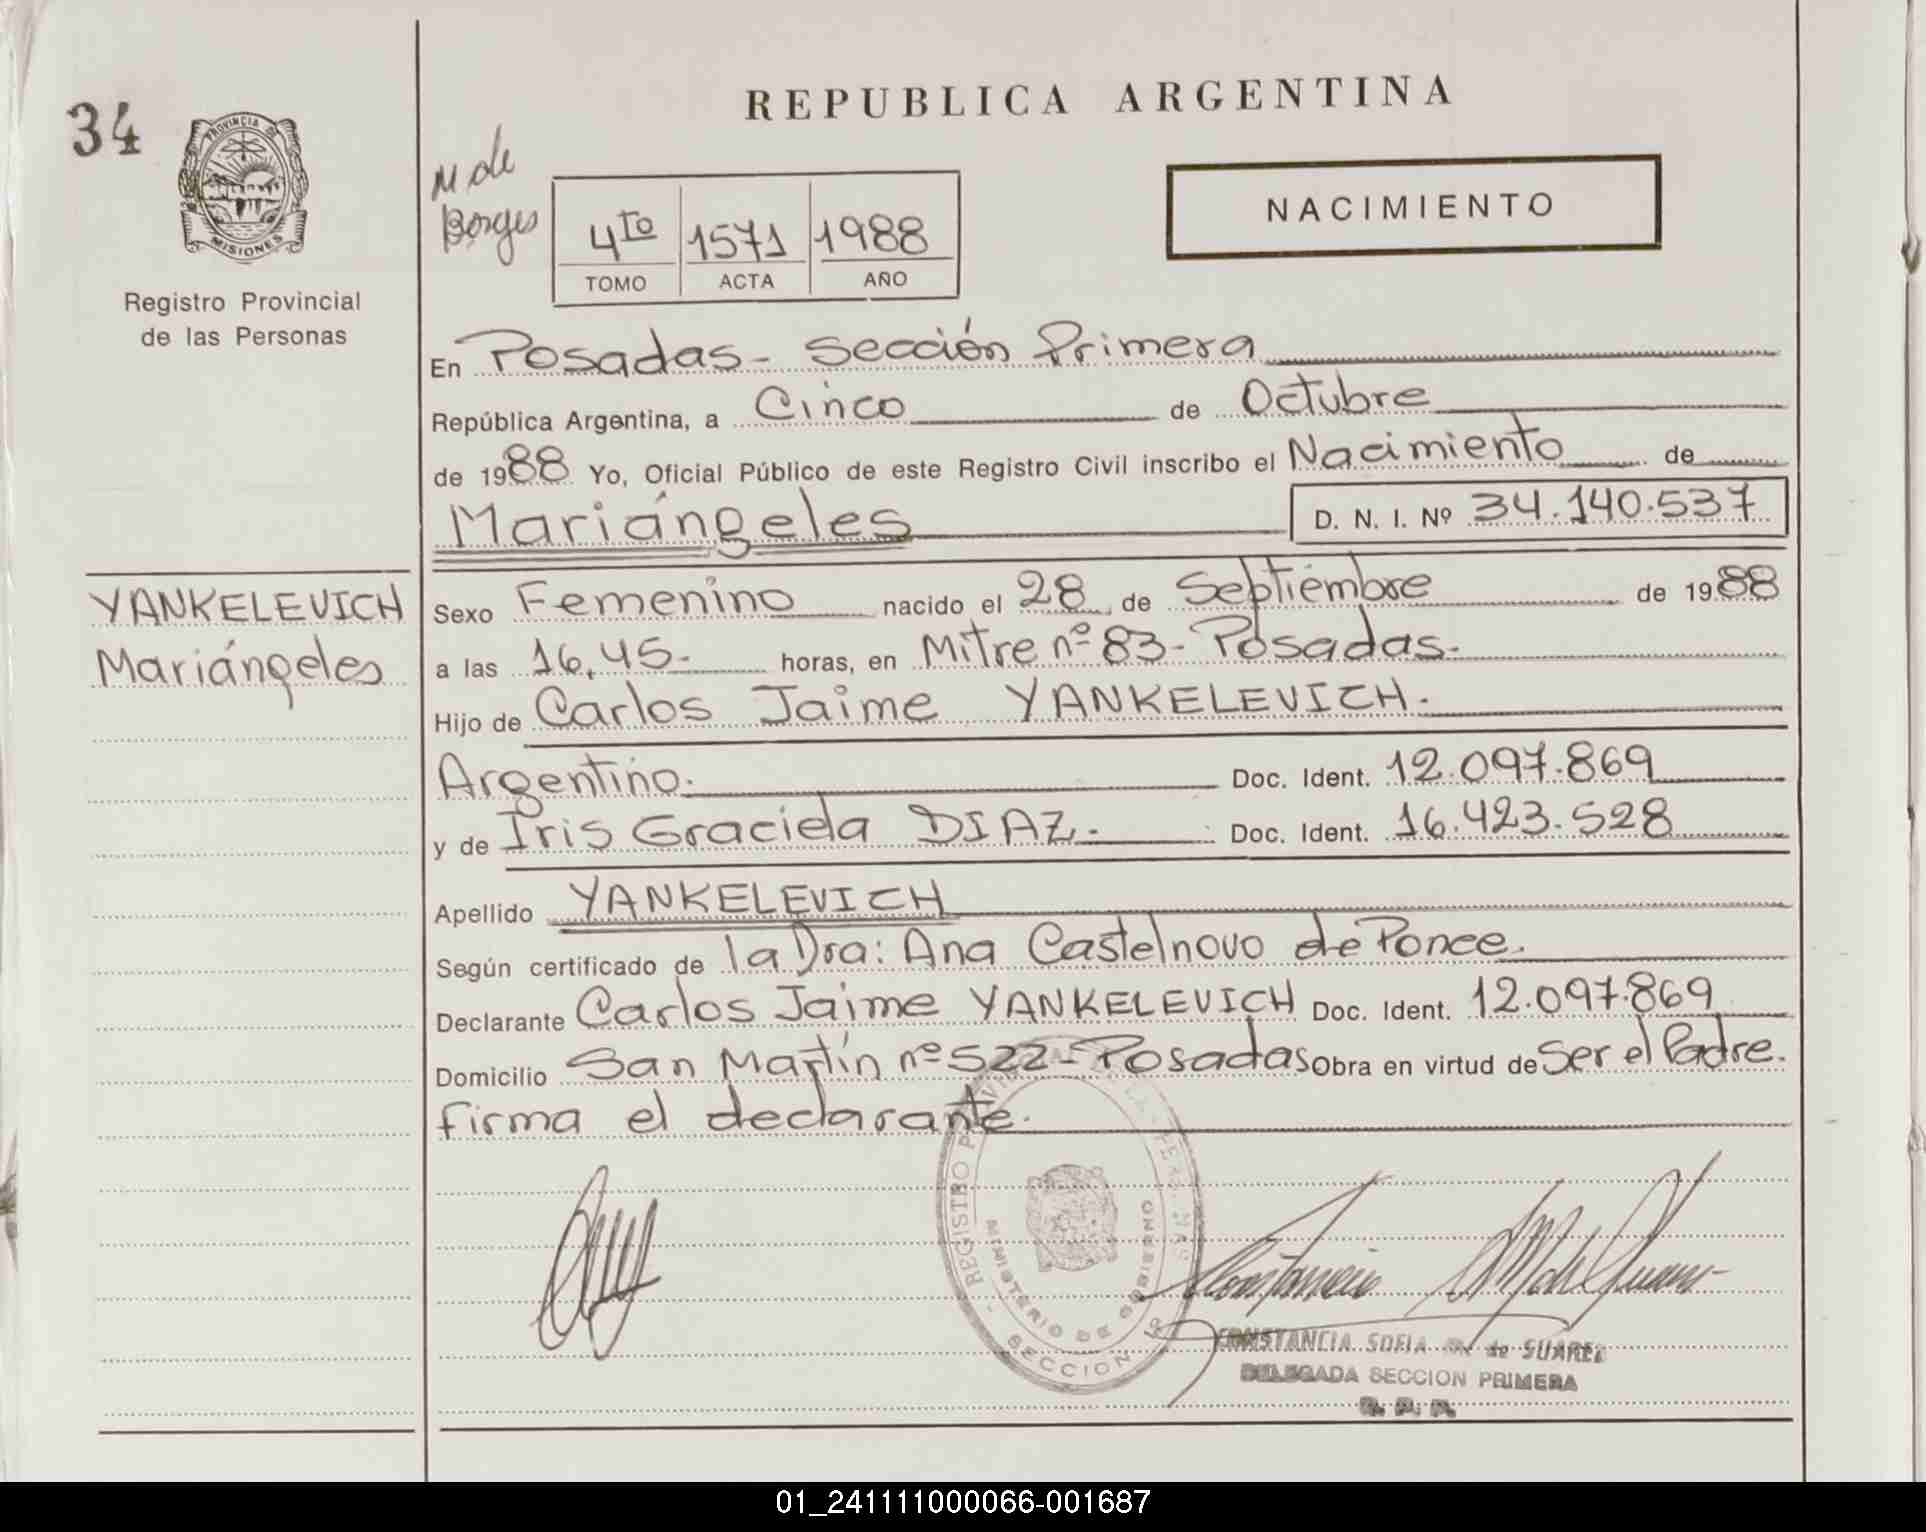 34
PROVINCIA DE
MISIONES
Registro Provincial
de las Personas
REPUBLICA ARGENTINA
M de
Borges
4to 1571 1988
TOMO ACTA AÑO
NACIMIENTO
En Posadas - Sección Primera
República Argentina, a Cinco de Octubre
de 1988 Yo, Oficial Público de este Registro Civil inscribo el Nacimiento de
Mariángeles D. N. I. Nº 34.140.537
YANKELEVICH
Mariángeles
Sexo Femenino nacido el 28 de Septiembre de 1988
a las 16,45- horas, en Mitre nº 83- Posadas.
Hijo de Carlos Jaime YANKELEVICH.
Argentino. Doc. Ident. 12.097.869
y de Iris Graciela DIAZ.- Doc. Ident. 16.423.528
Apellido YANKELEVICH
Según certificado de la Dra: Ana Castelnovo de Ponce.
Declarante Carlos Jaime YANKELEVICH Doc. Ident. 12.097.869
Domicilio San Martín nº 522 - Posadas Obra en virtud de Ser el Padre.
firma el declarante.
REGISTRO
MINISTERIO DE GOBIERNO
SECCION 1º
CONSTANCIA SOFIA de SUAREZ
DELEGADA SECCION PRIMERA
R. P. P.
01_241111000066-001687